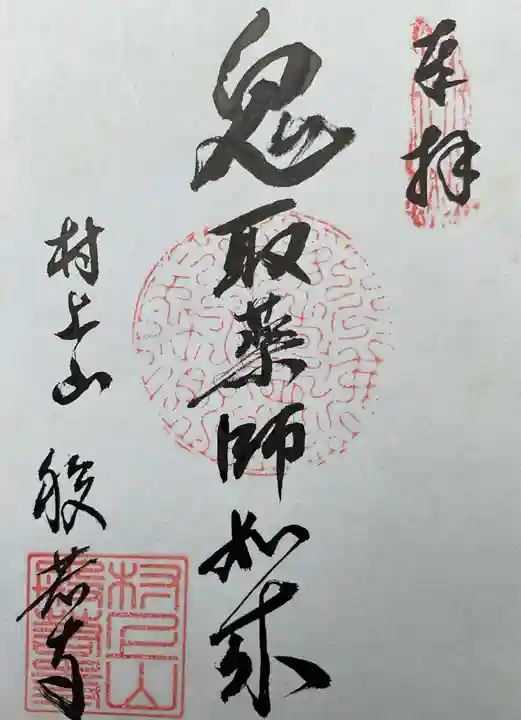 奉拝
鬼取薬師如来
村上山 般若寺
村上山